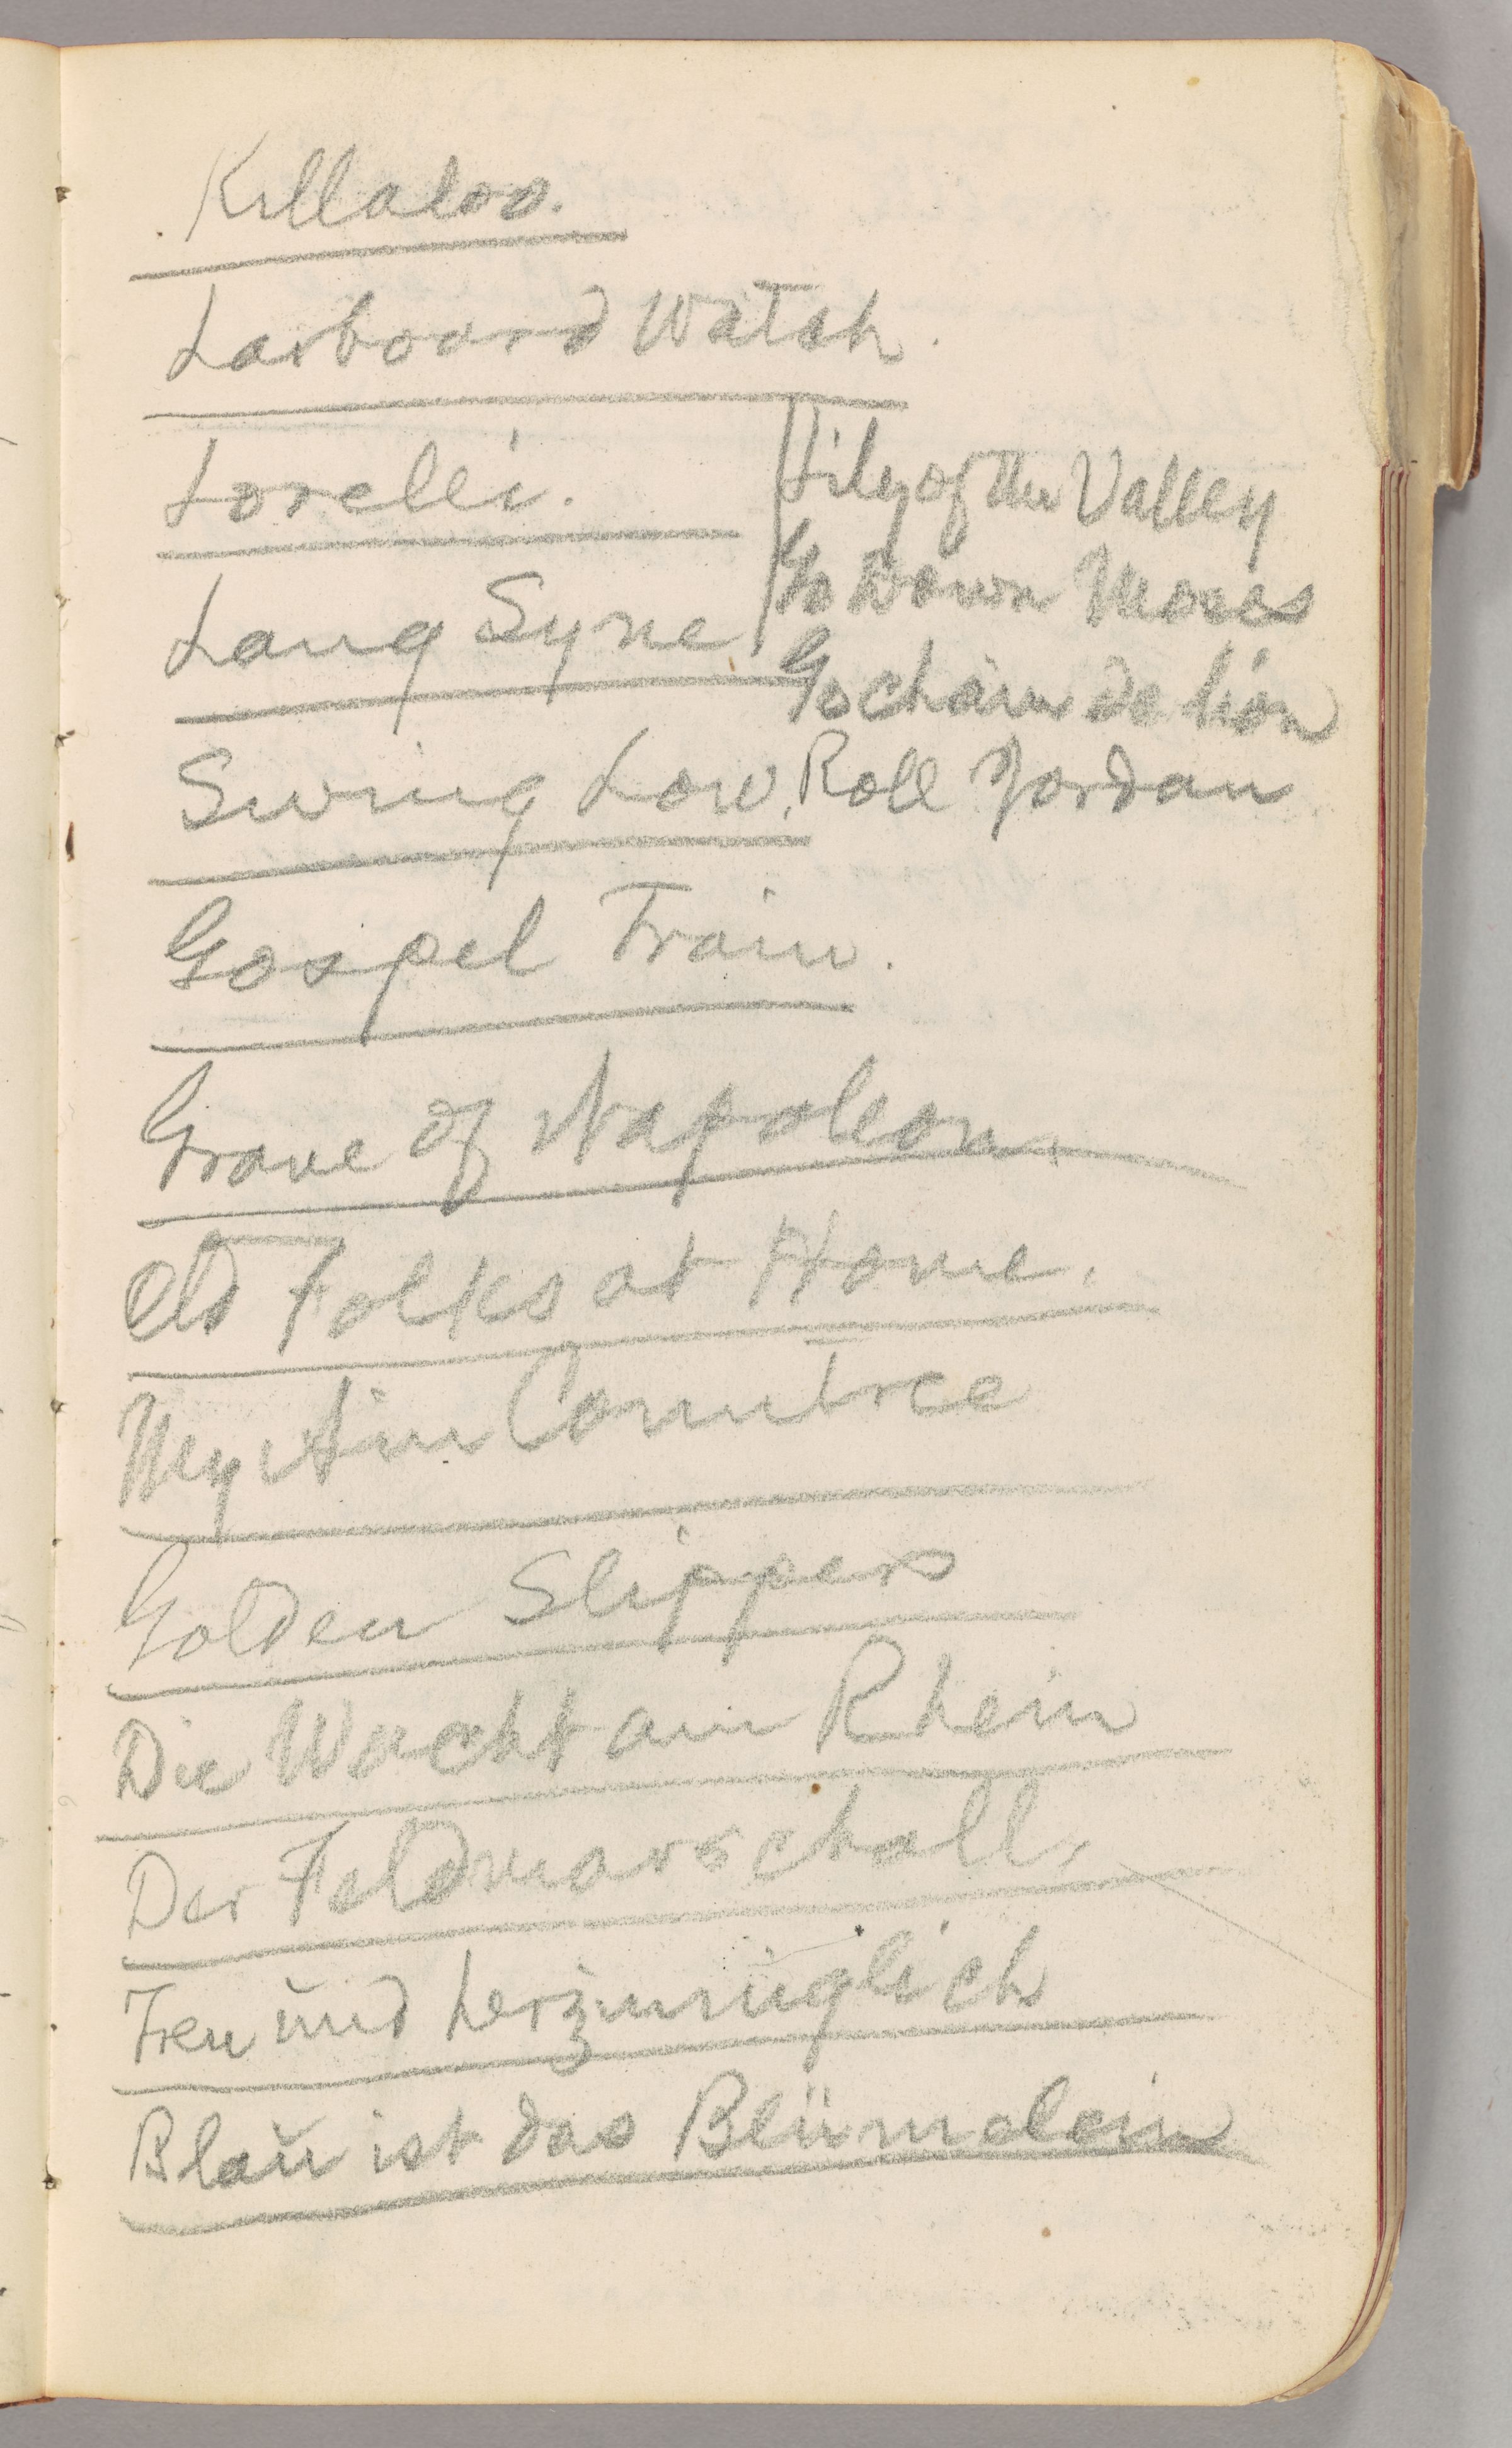 Killaloo.
Larboard Watch.
Lorelei.
Lang Syne
Lily of the Valley
Go Down Moses
Go chain de lion
Swing Low, Roll Jordan
Gospel Train.
Grave of Napoleon.
Old Folks at Home.
My Ain Countree
Golden Slippers
Die Wacht am Rhein
Der Feldmarschall,
Treu und herzinniglich
Blau ist das Blümelein